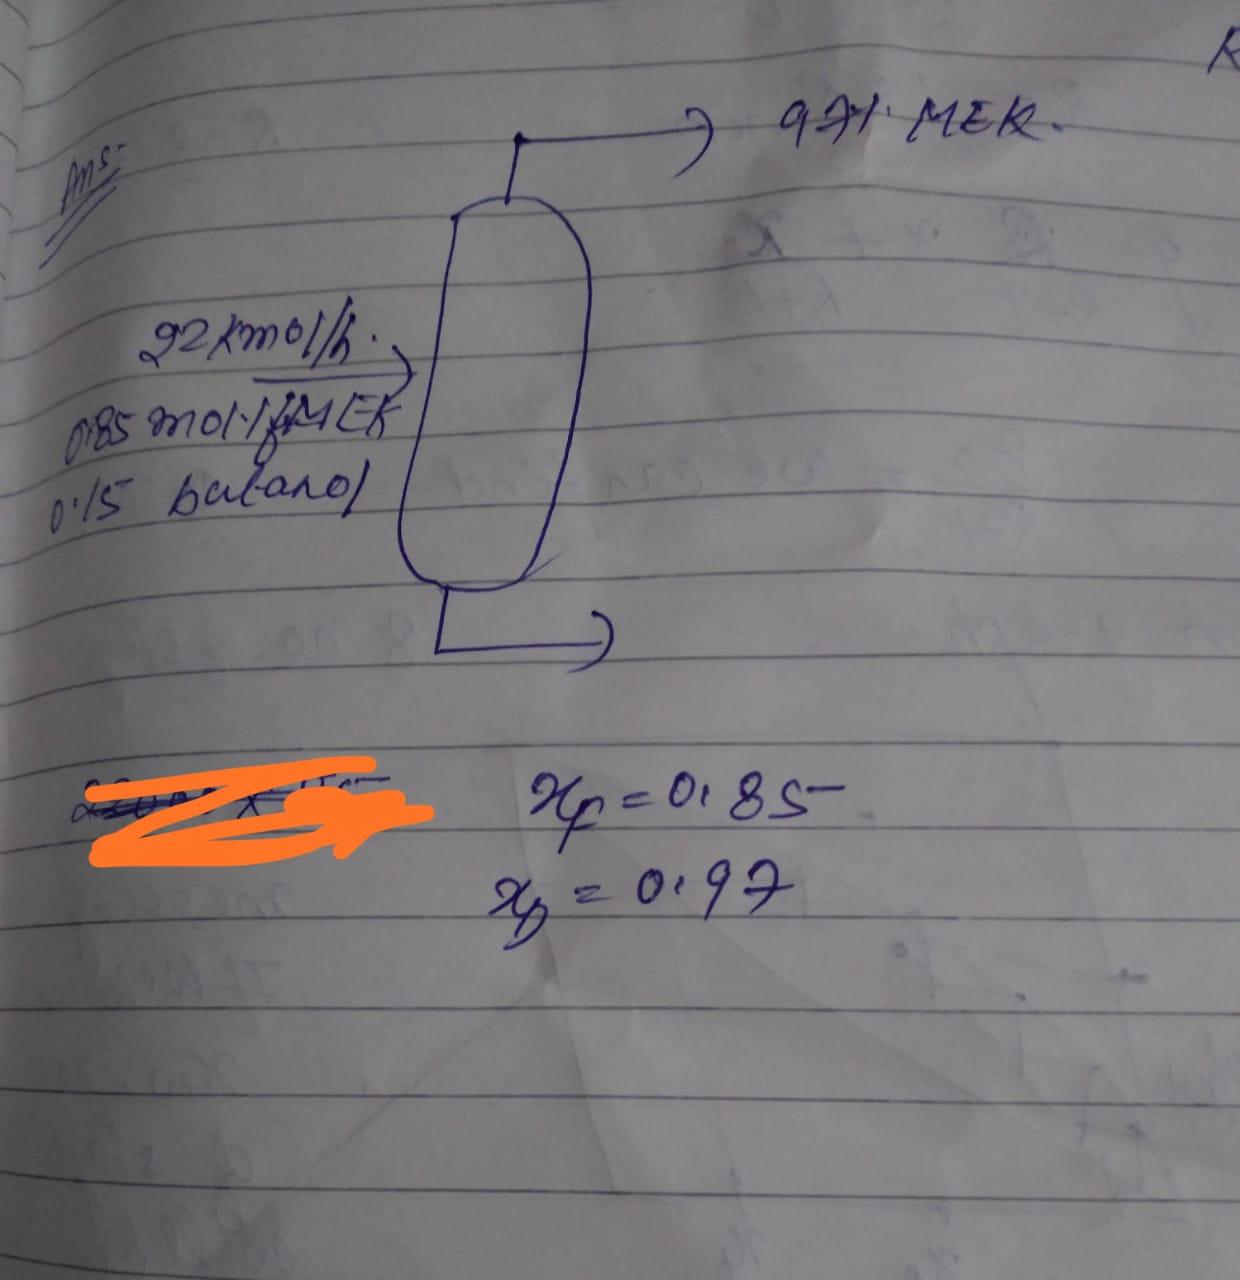 Ans-
97% MEK.
22 kmol/h.
0.85 mol. MEK
0.15 butanol
xF = 0.85
xD = 0.97